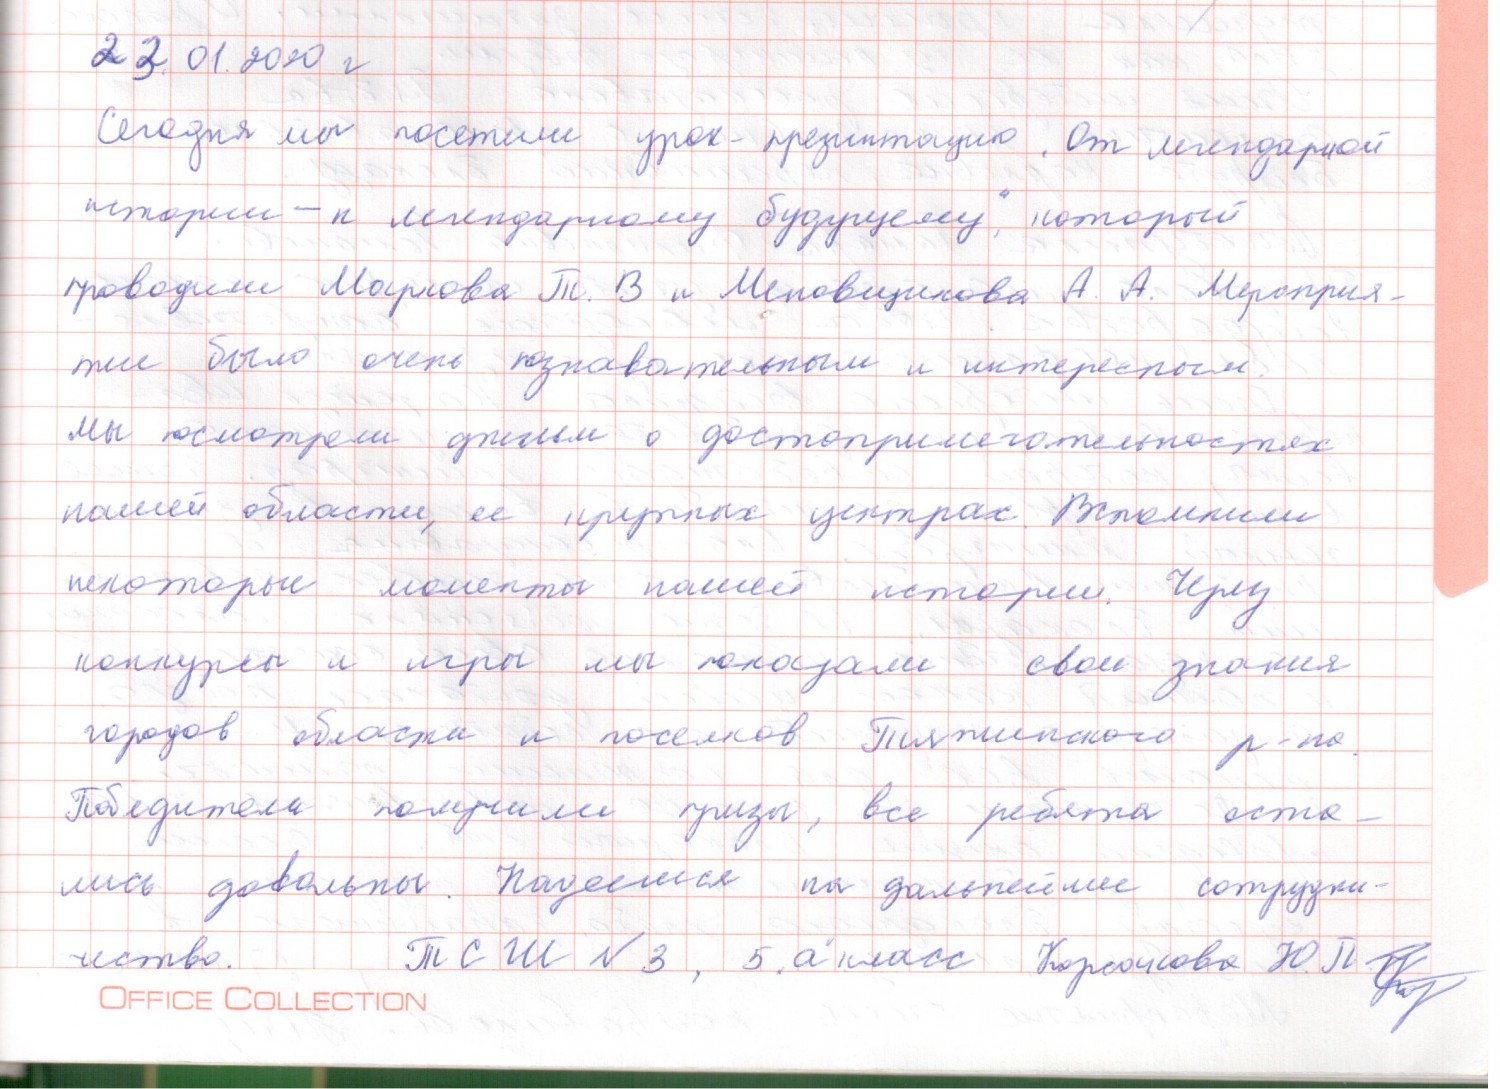 23.01.2020 г
Сегодня мы посетили урок-презинтацию „От легендарной
истории – к легендарному будущему", который
проводили Маркова Т. В и Меновщикова А. А. Мероприя-
тие было очень познавательным и интересным.
Мы посмотрели фильм о достопримечательностях
нашей области, ее крупных центрах. Вспомнили
некоторые моменты нашей истории. Через
конкурсы и игры мы показали свои знания
городов области и поселков Тяжинского р-на.
Победители получили призы, все ребята оста-
лись довольны. Надеемся на дальнейшее сотрудни-
чество. ТСШ N 3, 5 „а" класс Ю.П.
OFFICE COLLECTION